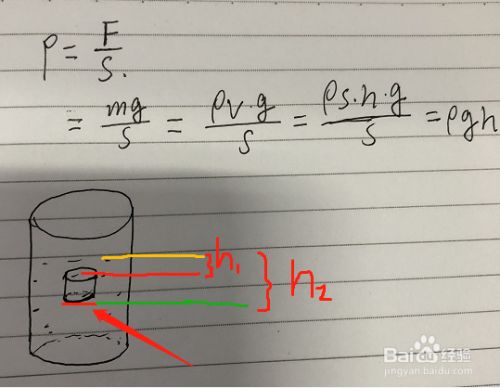 P = F/S.
= mg/S = ρv·g/S = ρs·h·g/S = ρgh
h₁
h₂
Baidu经验
jingyan.baidu.com